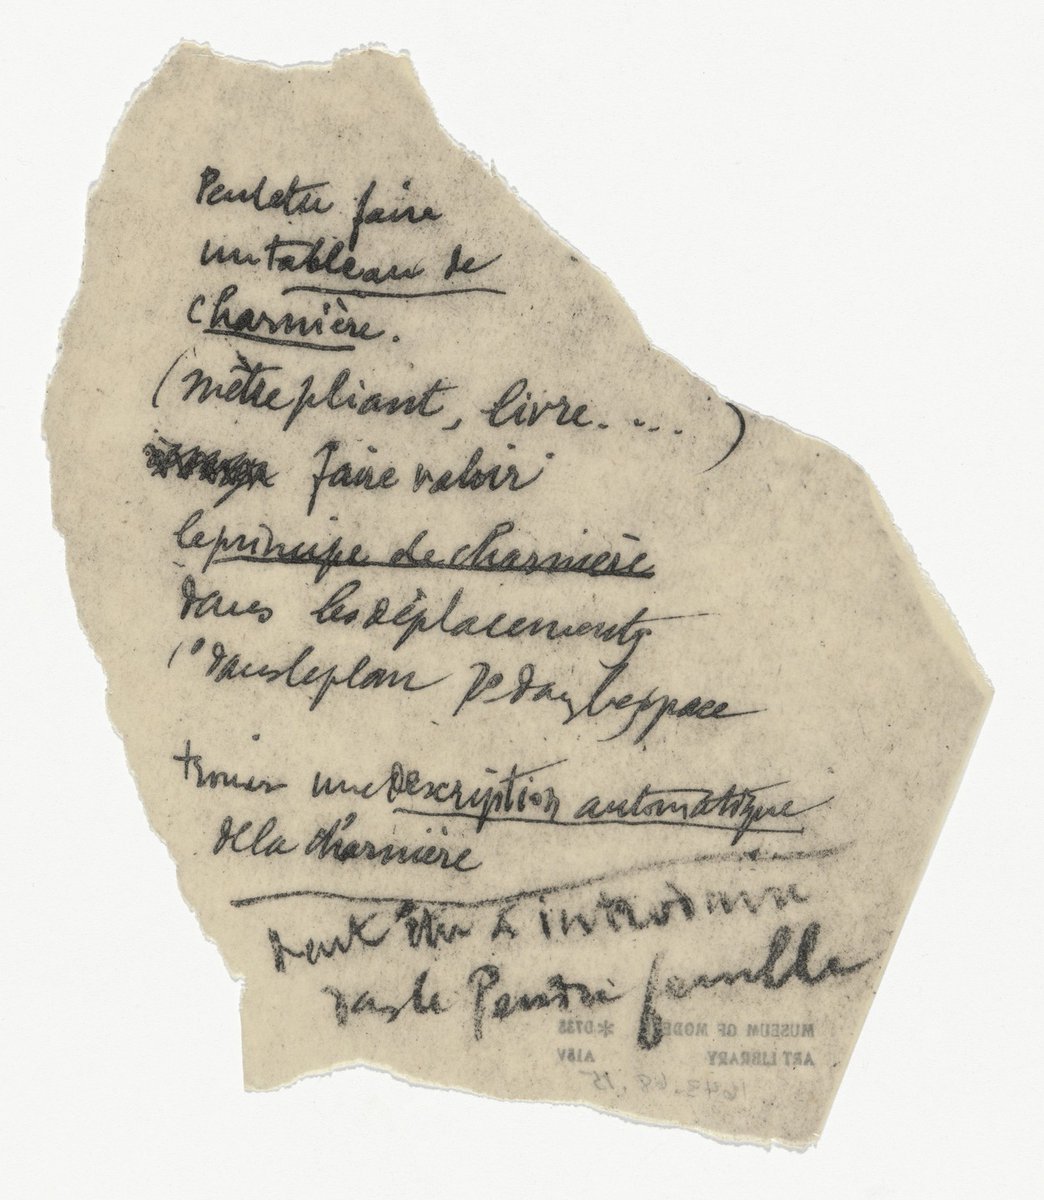 Peut être faire
un tableau de
charnière.
(mètre pliant, livre.....)
faire valoir
le principe de charnière
dans les déplacements
1° dans le plan 2° dans l'espace
trouver une description automatique
de la charnière
Peut être l'introduire
dans le Pendu femelle
MUSEUM OF MODERN
ART LIBRARY
*D738
A15V